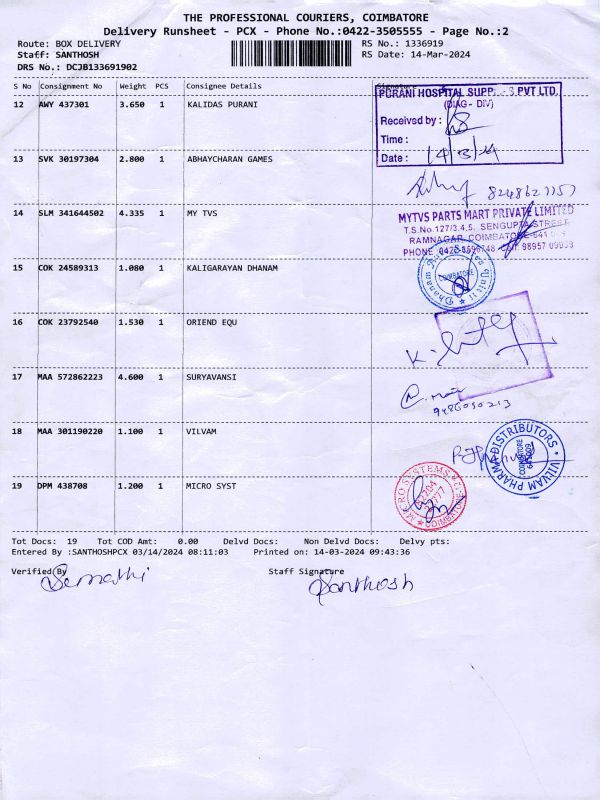 THE PROFESSIONAL COURIERS, COIMBATORE
Delivery Runsheet - PCX - Phone No.:0422-3505555 - Page No.:2
Route: BOX DELIVERY
RS No.: 1336919
Staff: SANTHOSH
RS Date: 14-Mar-2024
DRS No.: DCJB133691902
S No Consignment No Weight PCS Consignee Details Signature
12 AWY 437301 3.650 1 KALIDAS PURANI
PURANI HOSPITAL SUPP PVT LTD.
(DIAG - DIV)
Received by :
Time :
Date : 14/3/24
13 SVK 30197304 2.800 1 ABHAYCHARAN GAMES
14 SLM 341644502 4.335 1 MY TVS
MYTVS PARTS MART PRIVATE LIMITED
T.S.No.127/3,4,5, SENGUPTA STREET,
RAMNAGAR, COIMBATORE
PHONE
15 COK 24589313 1.080 1 KALIGARAYAN DHANAM
COIMBATORE
16 COK 23792540 1.530 1 ORIEND EQU
17 MAA 572862223 4.600 1 SURYAVANSI
18 MAA 301190220 1.100 1 VILVAM
VILVAM PHARMA DISTRIBUTORS
COIMBATORE
19 DPM 438708 1.200 1 MICRO SYST
MICRO SYSTEMS
COIMBATORE
Tot Docs: 19 Tot COD Amt: 0.00 Delvd Docs: Non Delvd Docs: Delvy pts:
Entered By :SANTHOSHPCX 03/14/2024 08:11:03 Printed on: 14-03-2024 09:43:36
Verified By
Staff Signature
Santhosh